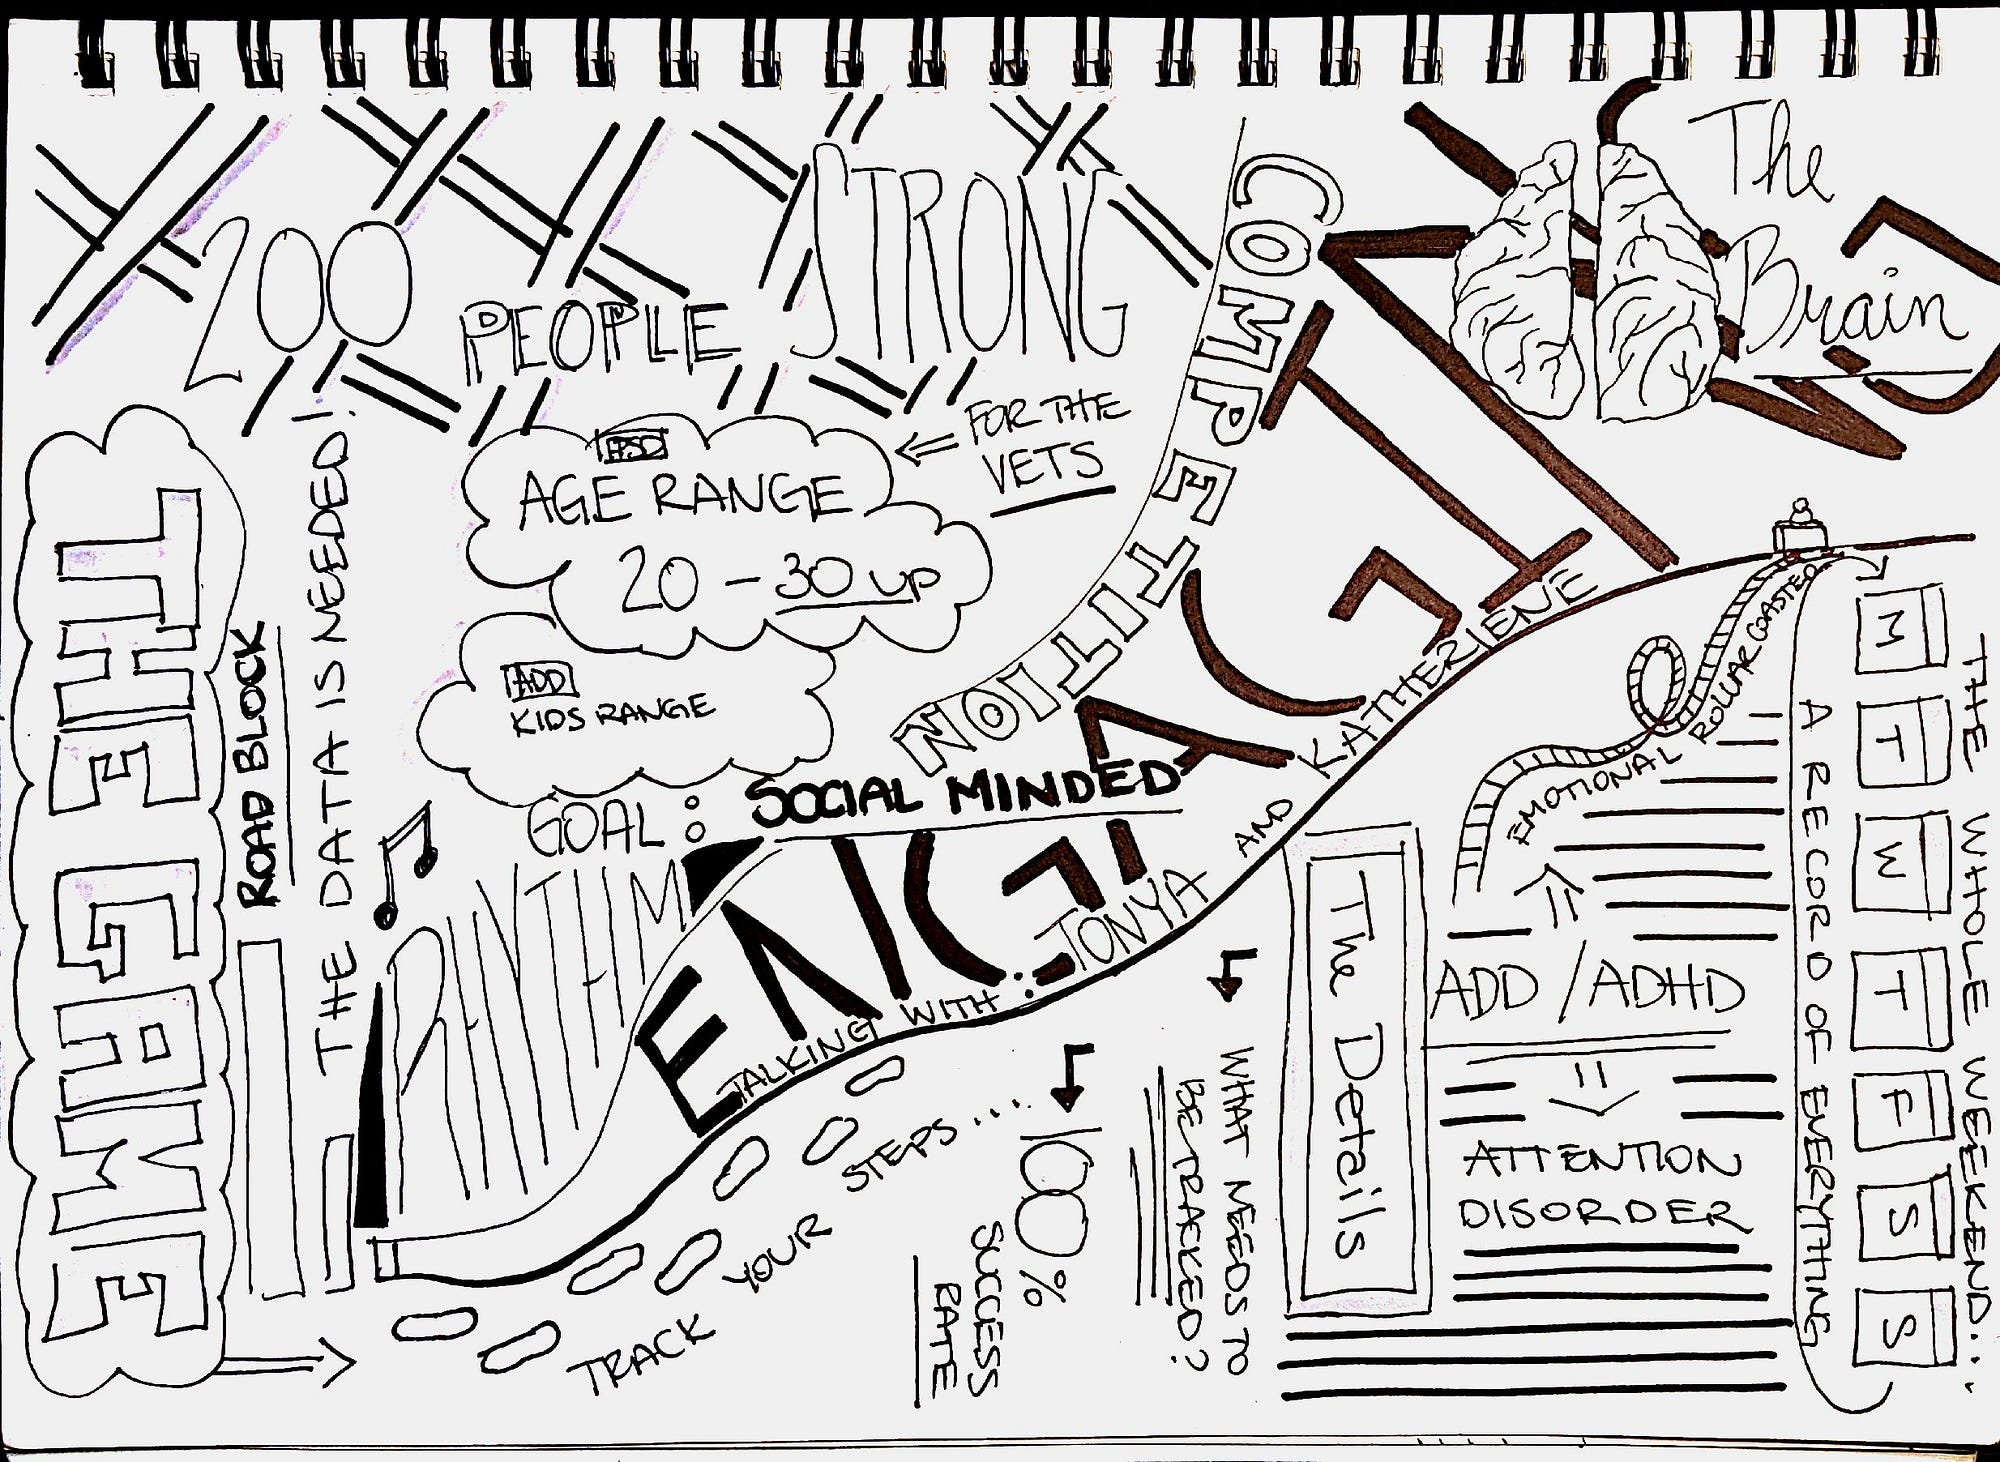 200 PEOPLE STRONG
The
Brain
COMPETITION
PTSD
AGE RANGE
20 - 30 UP
FOR THE
VETS
ADD
KIDS RANGE
GOAL: SOCIAL MINDED
THE GAME
ROAD BLOCK
THE DATA IS NEEDED!
RHYTHM
TALKING WITH: TONYA AND KATHERIENE
TRACK YOUR STEPS....
100%
SUCCESS
RATE
WHAT NEEDS TO
BE TRACKED?
The Details
EMOTIONAL ROLLARCOASTER
ADD / ADHD
ATTENTION
DISORDER
A RECORD OF ENERYTHING
M T W T F S S
THE WHOLE WEEKEND...